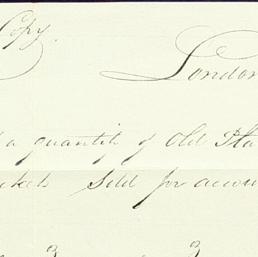 Copy.
London
a quantity of Old Sta
ckets Sold for accou
3 3